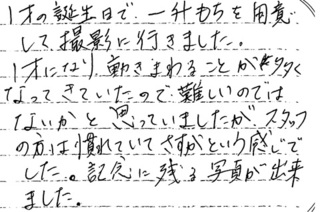 1才の誕生日で、一升もちを用意
して撮影に行きました。
1才になり、動きまわることが多く
なってきていたので難しいのでは
ないかと思っていましたが、スタッフ
の方は慣れていてさすがという感じで
した。記念に残る写真が出来
ました。